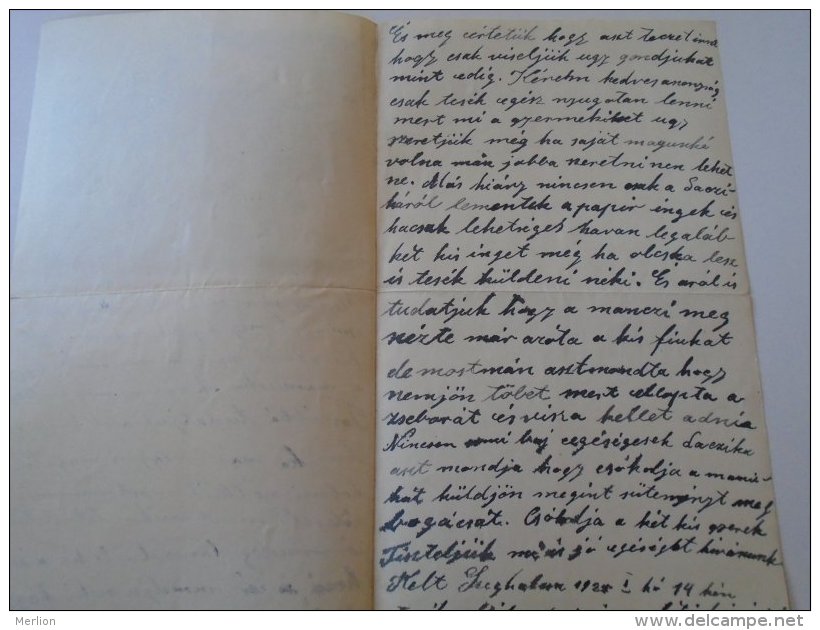 És meg értetük hogy aszt
hogy csak viseljük ugy gondjukat
mint edig. Kérem kedves
csak tesék egész nyugotan lenni
mert mi a gyermekiket ugy
szeretjük még ha saját magunké
volna mán jobba szeretni nen lehet
ne. Más hiány nincsen csak a Laczi
káról lementek a papir ingek és
hacsak lehetséges havan legaláb
két kis inget még ha olcska lesz
is tesék küldeni néki. És aról is
tudatjuk hogy a manczi meg
nézte már azóta a kis fiukat
de mostmán asztmondta hogy
nemjön töbet mert ellopta a
zseborát és visza kellet adnia
Nincsen semi baj egéségesek Laczika
aszt mondja hogy csókolja a mami
kát küldjön megint süteményt meg
bogácsát. Csókolja a két kis gyerek
Tiszteljük jó egéséget kivánunk
Kelt I hó 14 kén
Merlion
delcampe.net